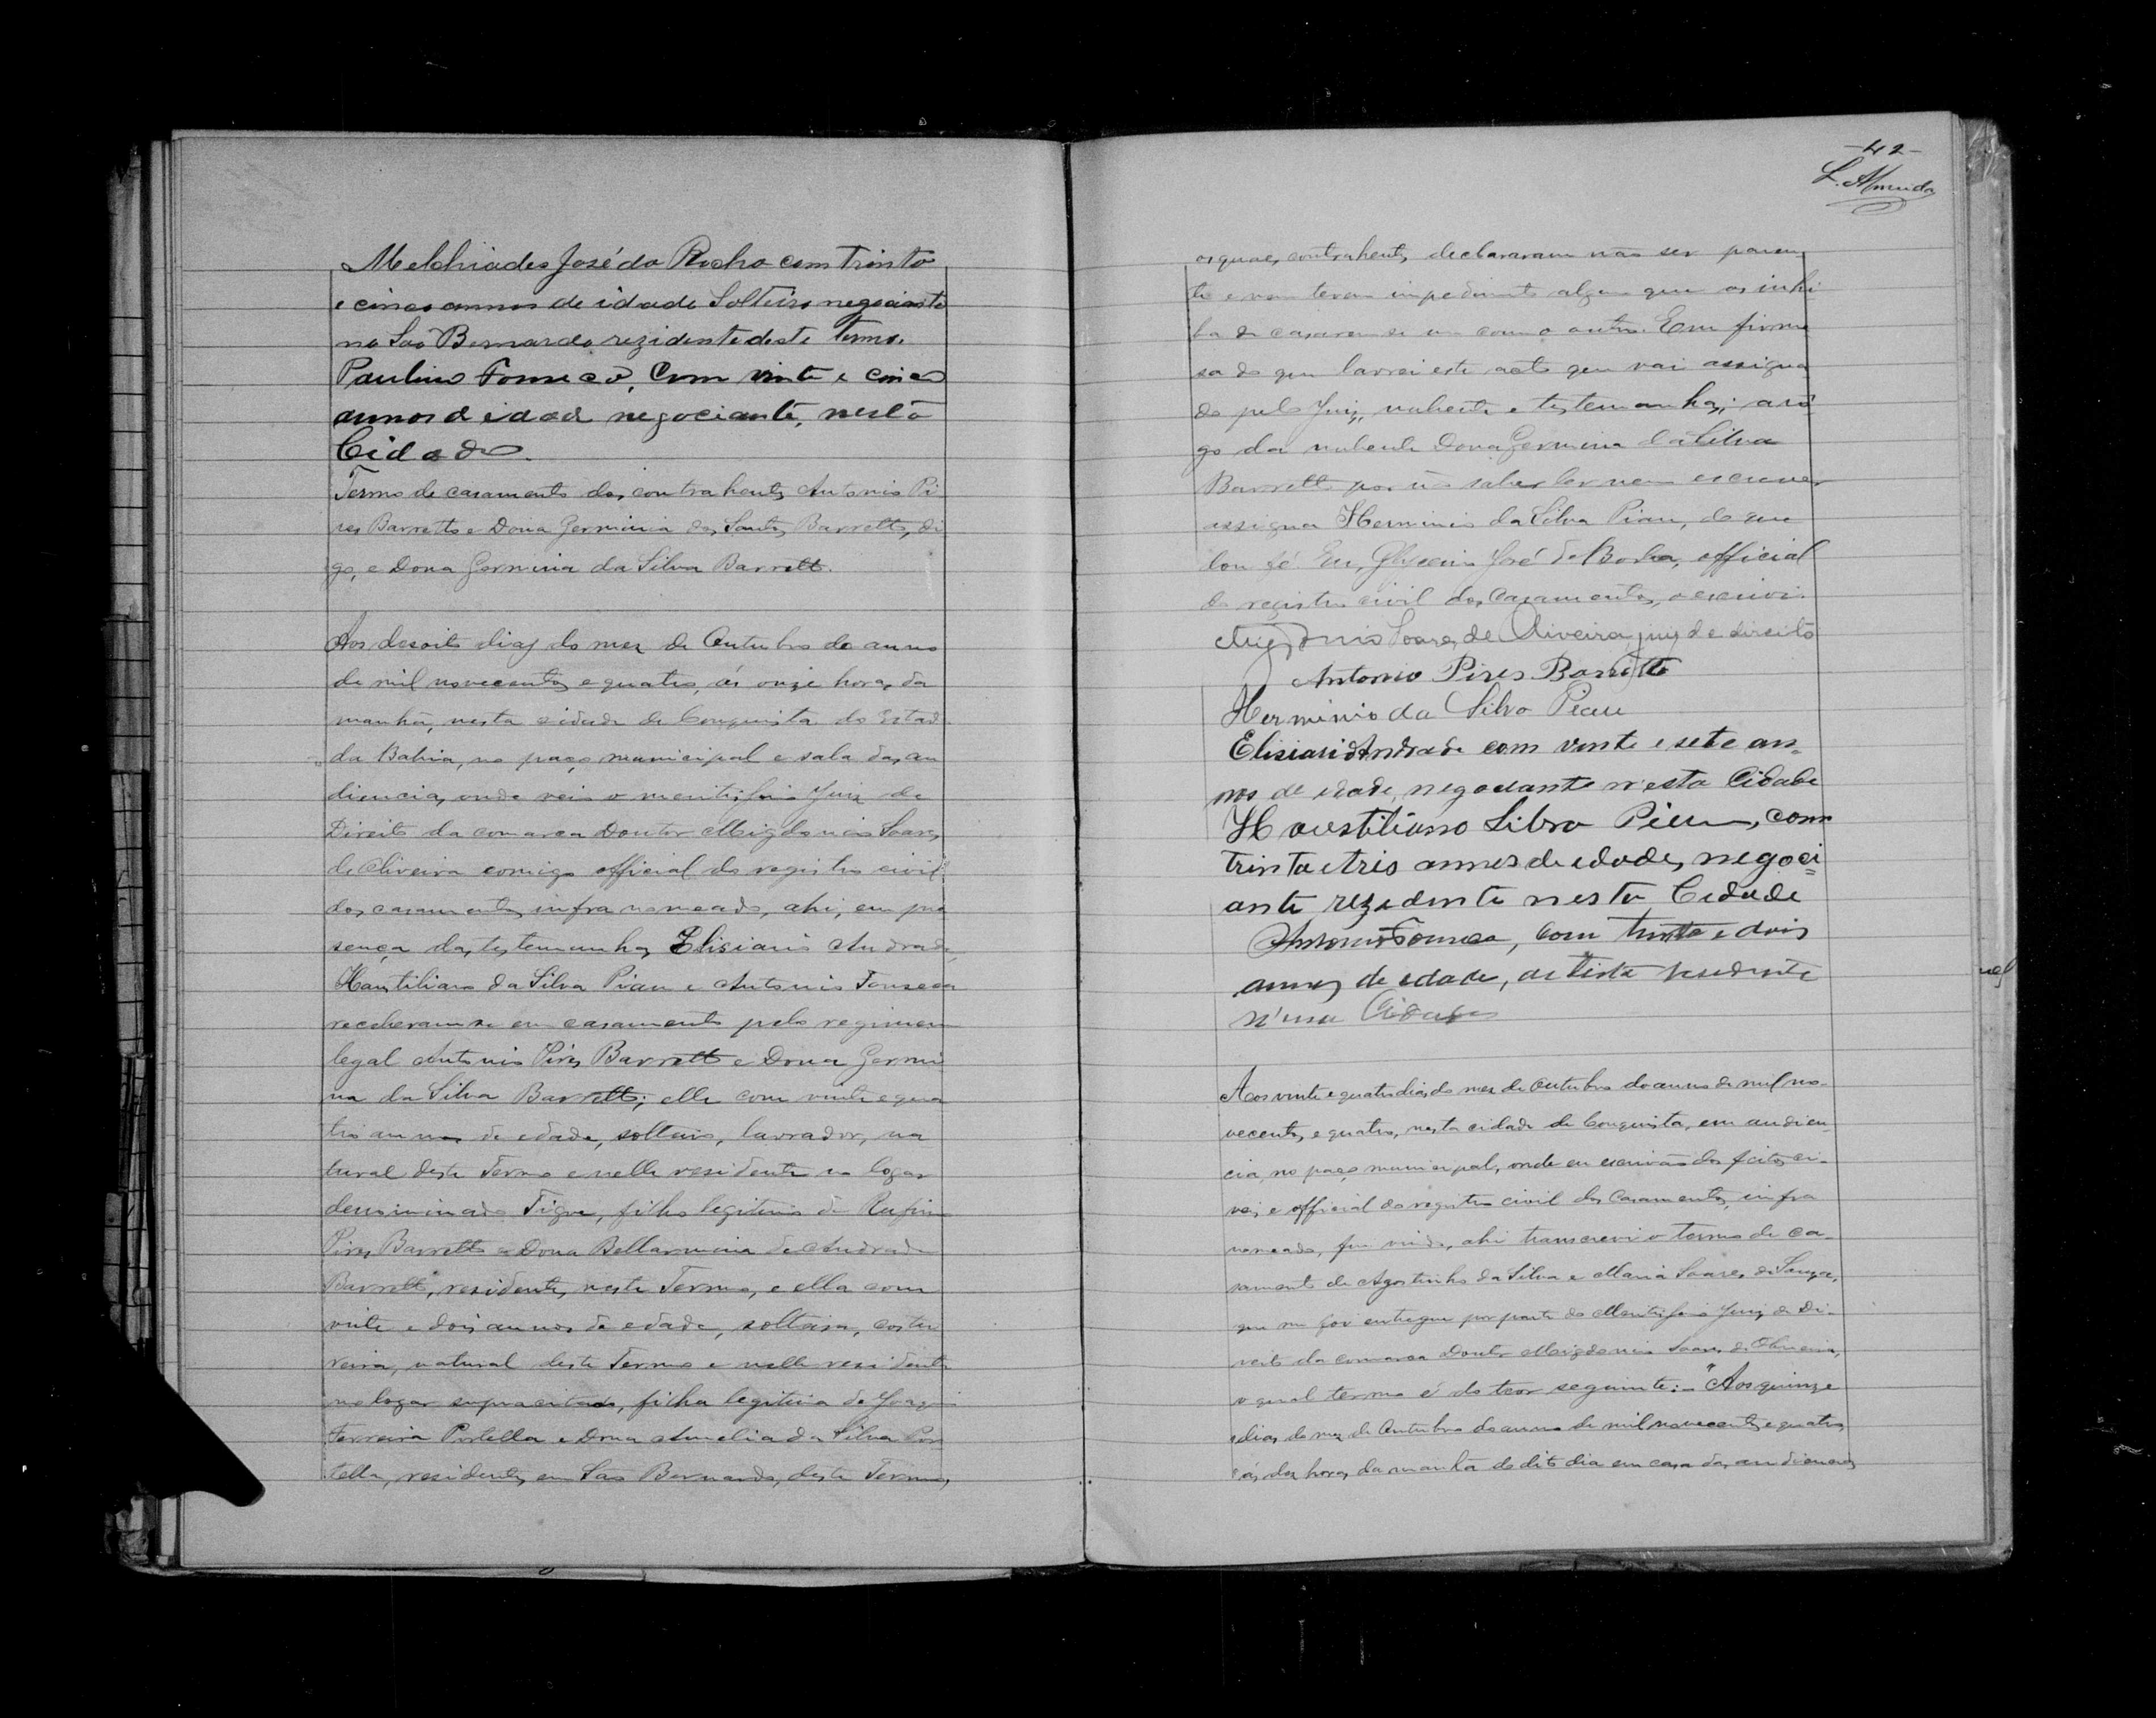 Melchiades José da Rocha com trinta
e cinco annos de idade Solteiro negociante
no Saõ Bernardo rezidente deste termo.
Paulino Fonseca, Com vinte e cinco
annos d idade negociante, nesta
Cidade.
Termo de casamento dos contrahentes Antonio Pi
res Barretto e Dona Germinia dos Santos Barretto, di
go, e Dona Germina da Silva Barretto.
Aos desoito dias do mez de Outubro do anno
de mil novecentos e quatro, ás onze horas da
manhã, nesta cidade de Conquista do Estado
da Bahia, no paço municipal e sala das au
diencias, onde veio o meritissimo Juiz de
Direito da comarca Doutor Migdonio Soares
de Oliveira comigo official do registro civil
dos casamentos infra nomeado, ahi, em pre
sença das testemunhas Elisiario Andrade,
Haustiliano da Silva Piau e Antonio Fonseca
receberam-se em casamento pelo regimem
legal Antonio Pires Barretto e Dona Germi
na da Silva Barretto; elle com vinte e qua
tro annos de edade, solteiro, lavrador, na
tural deste Termo e nelle residente no logar
denominado Tigre, filho legitimo de Rufino
Pires Barretto e Dona Bellarmina de Andrade
Barretto, residentes neste Termo, e ella com
vinte e dois annos de edade, solteira, costu
reira, natural deste Termo e nelle residente
no logar supracitado, filha legitima de Joaquim
Ferreira Portella e Dona Amelia da Silva Por
tella, residentes em São Bernardo, deste Termo,
-42-
L. Almeida
os quaes contrahentes declararam não ser paren
tes e nem terem impedimento algum que os inhi
ba de casarem-se um com o outro. Em firme
sa do que lavrei este acto que vai assigna
do pelo Juiz, nubente e testemunhas; a rô
go da nubente Dona Germina da Silva
Barretto por não saber ler nem escrever
assigna Herminio da Silva Piau, do que
dou fé. Eu, José de Borba, official
do registro civil dos casamentos, o escrivi.
Migdonio Soares de Oliveira juiz de direito
Antonio Pires Barretto
Herminio da Silva Piau
Elisiario Andrade com vinte e sete an-
nos de edade, negociante nesta Cidade
Haustiliano Silva Piau, com
trinta e tris annos de edade, negoci=
ante rezidente nesta Cidade
Antonio Fonseca, com trinta e dois
annos de edade, artista residente
n'esta Cidade
Aos vinte e quatro dias do mez de Outubro do anno de mil no-
vecentos e quatro, nesta cidade de Conquista, em audien-
cia, no paço municipal, onde eu escrivão dos feitos ci-
veis e official do registro civil dos Casamentos, infra
nomeado, fui vindo, ahi transcrevi o termo de ca-
samento de Agostinho da Silva e Maria Soares de Souza,
que me foi entregue por parte do Meritissimo Juiz de Di-
reito da comarca Doutor Migdonio Soares de Oliveira,
o qual termo é do teor seguinte:- "Aos quinze
dias do mez de Outubro do anno de mil novecentos e quatro,
ás dez horas da manhã do dito dia em casa das audiencias